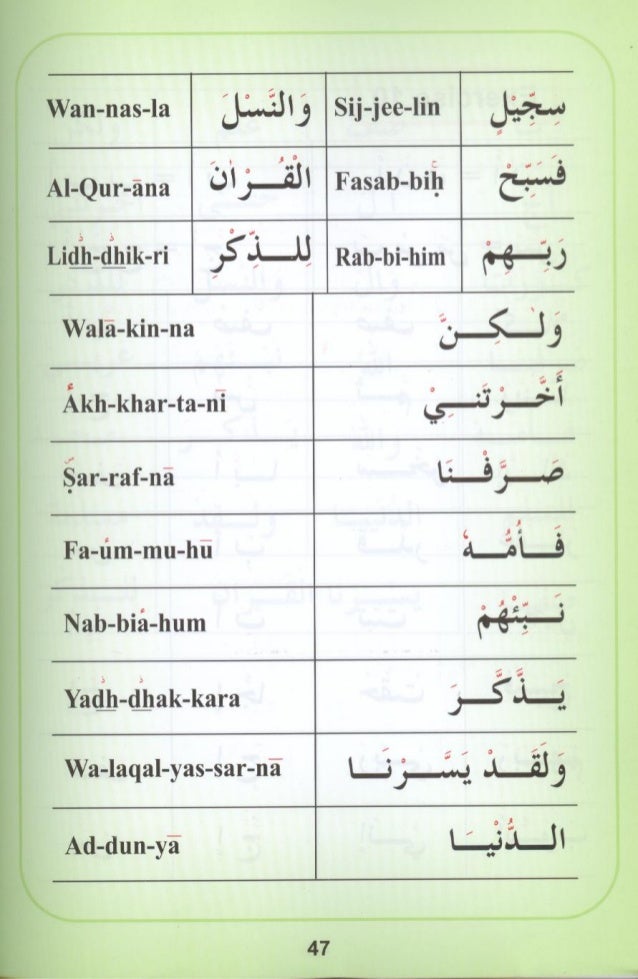 Wan-nas-la وَالنَّسْلَ Sij-jee-lin سِجِّيْلٍ
Al-Qur-āna الْقُرْاٰنَ Fasab-biḥ فَسَبِّحْ
Lidh-dhik-ri لِلذِّكْرِ Rab-bi-him رَبِّهِمْ
Walā-kin-na وَلٰكِنَّ
Ákh-khar-ta-nī أَخَّرْتَنِيْ
Ṣar-raf-nā صَرَّفْنَا
Fa-úm-mu-hū فَأُمُّهٗ
Nab-biá-hum نَبِّئْهُمْ
Yadh-dhak-kara يَذَّكَّرَ
Wa-laqal-yas-sar-nā وَلَقَدْ يَسَّرْنَا
Ad-dun-yā الدُّنْيَا
47